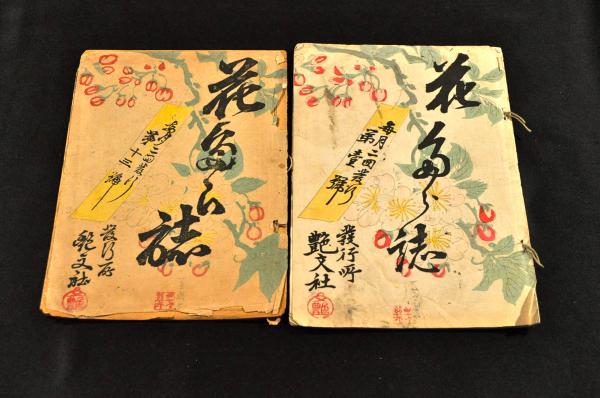 花あら誌
毎月二回發行
第十三號
發行所
艶文社
花あら誌
毎月二回發行
第壹號
發行所
艶文社